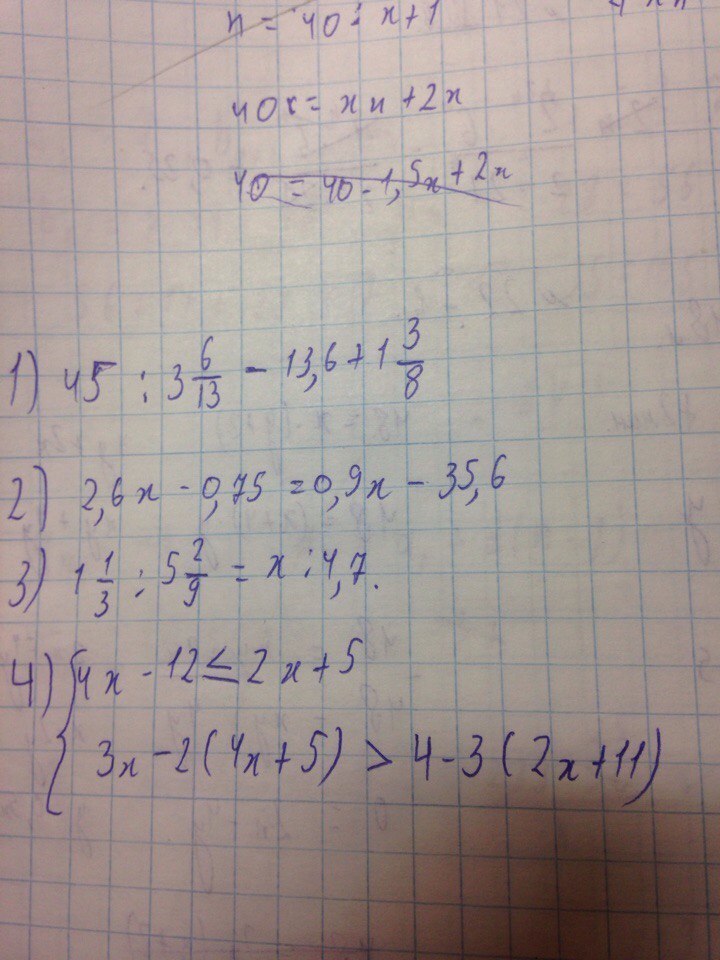 n = 40 : x+1
40x = xn + 2x
40 = 40 - 1,5x + 2x
1) 45 : 3 6/13 - 13,6 + 1 3/8
2) 2,6x - 0,75 = 0,9x - 35,6
3) 1 1/3 : 5 2/9 = x : 4,7.
4) { 4x - 12 ≤ 2x + 5
3x - 2(4x + 5) > 4 - 3(2x + 11)